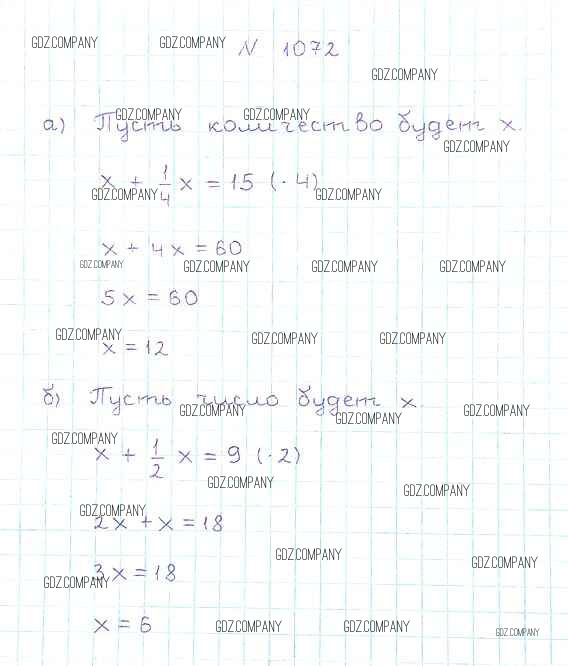 GDZ.COMPANY GDZ.COMPANY
N 1072
GDZ.COMPANY
GDZ.COMPANY GDZ.COMPANY
а) Пусть количество будет x.
GDZ.COMPANY
x + 1/4 x = 15 (· 4)
GDZ.COMPANY GDZ.COMPANY
x + 4x = 60
GDZ.COMPANY GDZ.COMPANY GDZ.COMPANY GDZ.COMPANY
5x = 60
GDZ.COMPANY GDZ.COMPANY GDZ.COMPANY
x = 12
б) Пусть число будет x.
GDZ.COMPANY GDZ.COMPANY GDZ.COMPANY
GDZ.COMPANY
x + 1/2 x = 9 (· 2)
GDZ.COMPANY GDZ.COMPANY
GDZ.COMPANY
2x + x = 18
GDZ.COMPANY GDZ.COMPANY
3x = 18
GDZ.COMPANY
x = 6
GDZ.COMPANY GDZ.COMPANY GDZ.COMPANY